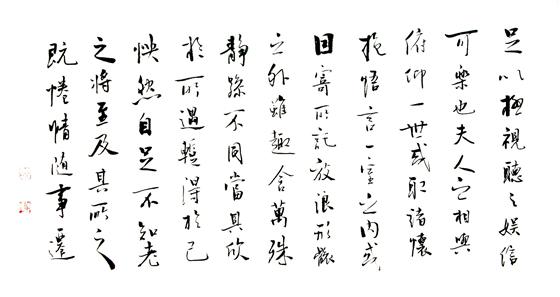 足以極視聽之娛信
可樂也夫人之相與
俯仰一世或取諸懷
抱悟言一室之内或
因寄所託放浪形骸
之外雖趣舍萬殊
靜躁不同當其欣
於所遇暫得於己
怏然自足不知老
之將至及其所之
既惓情隨事遷